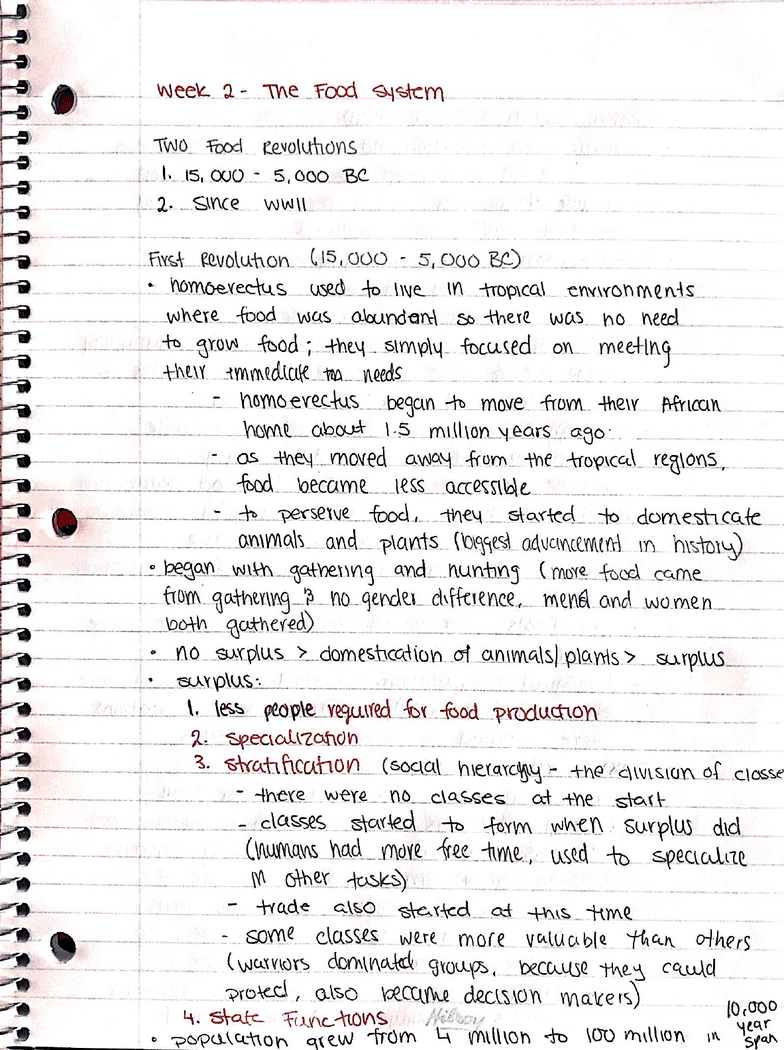 Week 2 - The Food System
TWO Food Revolutions
1. 15,000 - 5,000 BC
2. Since WWII
First Revolution (15,000 - 5,000 BC)
• homoerectus used to live in tropical environments
where food was abundant so there was no need
to grow food; they simply focused on meeting
their immediate needs
- homoerectus began to move from their African
home about 1.5 million years ago.
- as they moved away from the tropical regions,
food became less accessible
- to perserve food, they started to domesticate
animals and plants (biggest advancement in history)
• began with gathering and hunting (more food came
from gathering & no gender difference, men and women
both gathered)
• no surplus > domestication of animals/plants > surplus
• surplus:
1. less people required for food production
2. specialization
3. stratification (social hierarchy - the division of classe
- there were no classes at the start
- classes started to form when surplus did
(humans had more free time, used to specialize
in other tasks)
- trade also started at this time
- some classes were more valuable than others
(warriors dominated groups, because they could
protect, also became decision makers)
4. State Functions
Hilroy
• population grew from 4 million to 100 million in 10,000
year
span